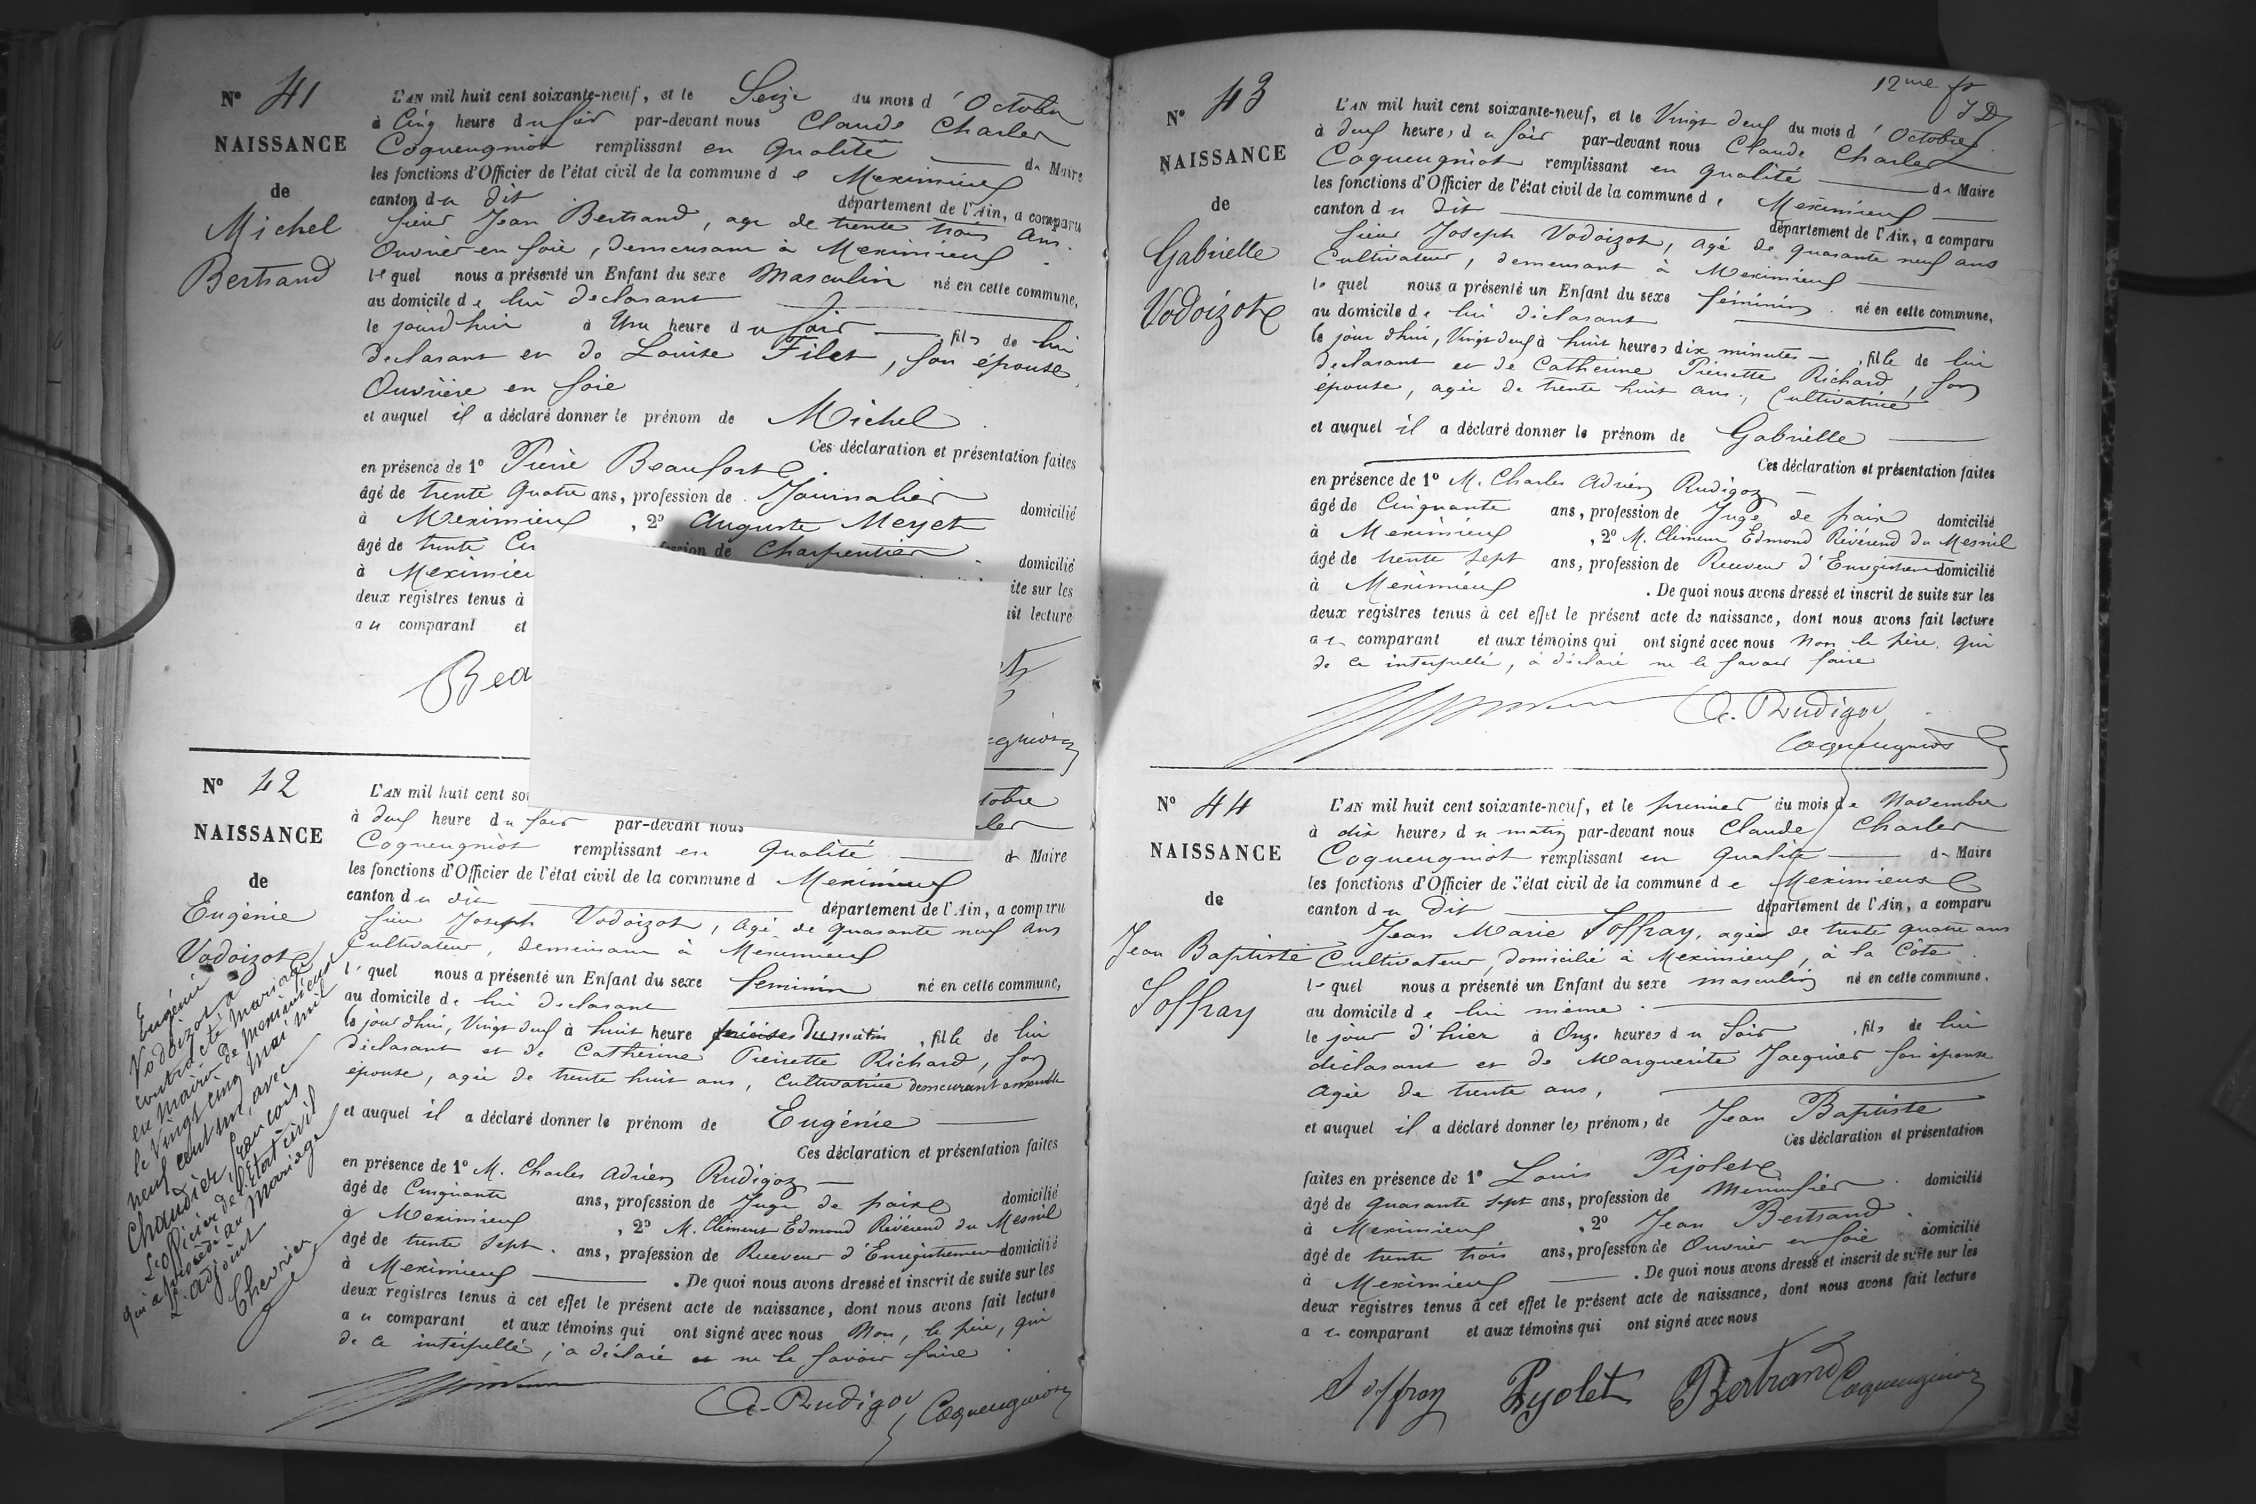 N° 41
NAISSANCE
de
Michel
Bertrand
L'AN mil huit cent soixante-neuf, et le Seize du mois d'Octobre
à Cinq heure du soir par-devant nous Claude Charles
Coqueugniot remplissant en qualité de Maire
les fonctions d'Officier de l'état civil de la commune de Meximieux
canton du dit département de l'Ain, a comparu
sieur Jean Bertrand, agé de trente trois ans.
Ouvrier en soie, demeurant à Meximieux
lequel nous a présenté un Enfant du sexe Masculin né en cette commune,
au domicile de lui déclarant
le jourd'hui à Une heure du soir fils de lui
declarant et de Louise Filet, son épouse
Ouvrière en soie
et auquel il a déclaré donner le prénom de Michel
Ces déclaration et présentation faites
en présence de 1° Pierre Beaufort
âgé de trente quatre ans, profession de Journalier domicilié
à Meximieux, 2° Auguste Meyet
âgé de trente fession de Charpentier domicilié
à Meximieu ite sur les
deux registres tenus à ait lecture
au comparant et
Bea
N° 42
NAISSANCE
de
Eugénie
Vodoizot
L'AN mil huit cent soi tobre
à deux heure du soir par-devant nous les
Coqueugniot remplissant en qualité de Maire
les fonctions d'Officier de l'état civil de la commune d Meximieux
canton du dit département de l'Ain, a comparu
sieur Joseph Vodoizot, agé de quarante neuf ans
Cultivateur, demeurant à Meximieux
lequel nous a présenté un Enfant du sexe feminin né en cette commune,
au domicile de lui declarant
le jour d'hui, Vingt deux à huit heure précises du matin, fille de lui
déclarant et de Catherine Pierrette Richard, son
épouse, agée de trente huit ans, Cultivatrice demeurant ensemble
et auquel il a déclaré donner le prénom de Eugénie
Ces déclaration et présentation faites
en présence de 1° M. Charles Adrien Rudigoz
âgé de Cinquante ans, profession de Juge de paix domicilié
à Meximieux, 2° M. Clément Edmond Révérend du Mesnil
âgé de trente sept ans, profession de Receveur d'Enregistrement domicilié
à Meximieux. De quoi nous avons dressé et inscrit de suite sur les
deux registres tenus à cet effet le présent acte de naissance, dont nous avons fait lecture
au comparant et aux témoins qui ont signé avec nous Non, le père, qui
de ce interpellé, a déclaré ne le savoir faire
A. Rudigoz Coqueugniot
Eugénie
Vodoizot a
contracté mariage
en mairie de Meximieux
le vingt cinq mai mil
neuf cent un, avec
Chaudier, François
L'officier de l'Etat civil
qui a procédé au mariage
L'adjoint
Chevrier
12me ft
N° 43
NAISSANCE
de
Gabrielle
Vodoizot
L'AN mil huit cent soixante-neuf, et le Vingt deux du mois d'Octobre
à deux heures du soir par-devant nous Claude Charles
Coqueugniot remplissant en qualité de Maire
les fonctions d'Officier de l'état civil de la commune de Meximieux
canton du dit département de l'Ain, a comparu
sieur Joseph Vodoizot, agé de quarante neuf ans
Cultivateur, demeurant à Meximieux
lequel nous a présenté un Enfant du sexe féminin né en cette commune,
au domicile de lui déclarant
le jour d'hui, Vingt deux à huit heures dix minutes, fille de lui
declarant et de Catherine Pierrette Richard, son
épouse, agée de trente huit ans, Cultivatrice
et auquel il a déclaré donner le prénom de Gabrielle
Ces déclaration et présentation faites
en présence de 1° M. Charles Adrien Rudigoz
âgé de Cinquante ans, profession de Juge de paix domicilié
à Meximieux, 2° M. Clément Edmond Révérend du Mesnil
âgé de trente sept ans, profession de Receveur d'Enregistrement domicilié
à Meximieux. De quoi nous avons dressé et inscrit de suite sur les
deux registres tenus à cet effet le présent acte de naissance, dont nous avons fait lecture
au comparant et aux témoins qui ont signé avec nous Non le père, qui
de ce interpellé, a déclaré ne le savoir faire
A. Rudigoz
Coqueugniot
N° 44
NAISSANCE
de
Jean Baptiste
Soffray
L'AN mil huit cent soixante-neuf, et le premier du mois de Novembre
à dix heures du matin par-devant nous Claude Charles
Coqueugniot remplissant en qualité de Maire
les fonctions d'Officier de l'état civil de la commune de Meximieux
canton du dit département de l'Ain, a comparu
Jean Marie Soffray, agé de trente quatre ans
Cultivateur, domicilié à Meximieux, à la Côte
lequel nous a présenté un Enfant du sexe masculin né en cette commune.
au domicile de lui même
le jour d'hier à Onze heures du soir, fils de lui
déclarant et de Marguerite Jacquier son épouse
agée de trente ans,
et auquel il a déclaré donner les prénom, de Jean Baptiste
Ces déclaration et présentation
faites en présence de 1° Louis Pijolet
âgé de quarante sept ans, profession de Menuisier domicilié
à Meximieux, 2° Jean Bertrand
âgé de trente trois ans, profession de Ouvrier en soie domicilié
à Meximieux. De quoi nous avons dressé et inscrit de suite sur les
deux registres tenus à cet effet le présent acte de naissance, dont nous avons fait lecture
au comparant et aux témoins qui ont signé avec nous
Soffray Pyolet Bertrand Coqueugniot